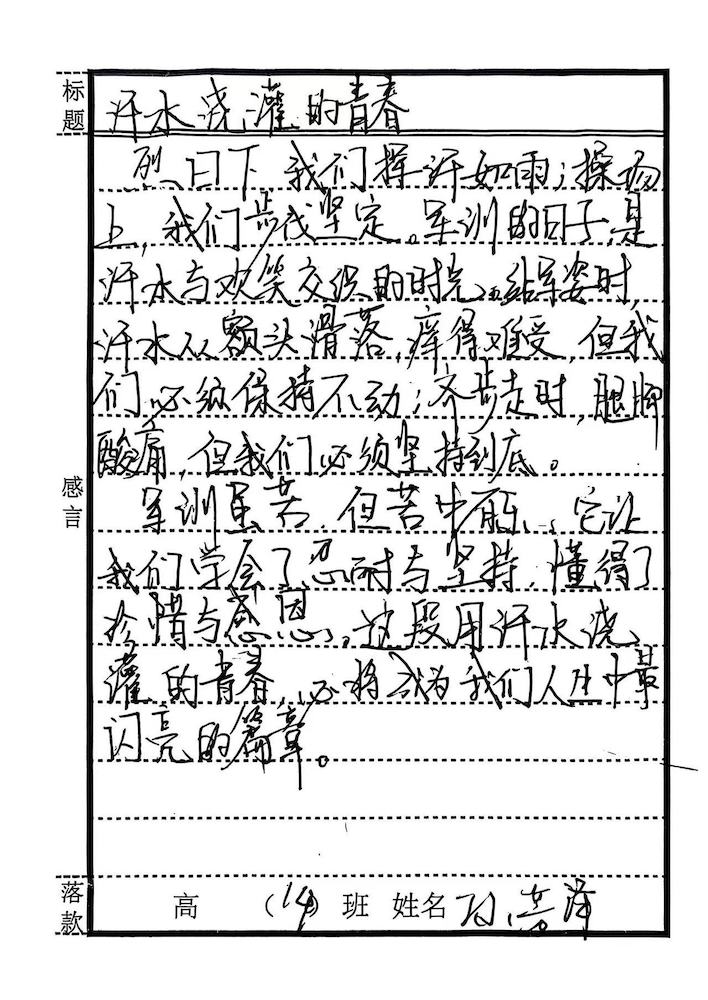 标题
汗水浇灌的青春
烈日下,我们挥汗如雨;操场
上,我们步伐坚定。军训的日子,是
汗水与欢笑交织的时光。站军姿时,
汗水从额头滑落,痒得难受,但我
们必须保持不动;齐步走时,腿脚
酸痛,但我们必须坚持到底。
感言
军训虽苦,但苦中有乐,它让
我们学会了忍耐与坚持,懂得了
珍惜与感恩。这段用汗水浇
灌的青春,必将成为我们人生中最
闪亮的篇章。
落款
高 (14) 班 姓名